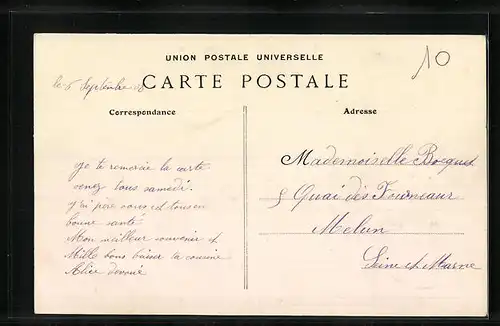 UNION POSTALE UNIVERSELLE
10
le 6 Septembre
CARTE POSTALE
Correspondance
Je te remercie la carte
venez tous samedi.
J'ai père vous est tous en
bonne santé
Mon meilleur souvenir et
Mille bons baiser la cousine
Alice
Adresse
Mademoiselle Bocquet
5 Quai des Fourneaux
Melun
Seine et Marne